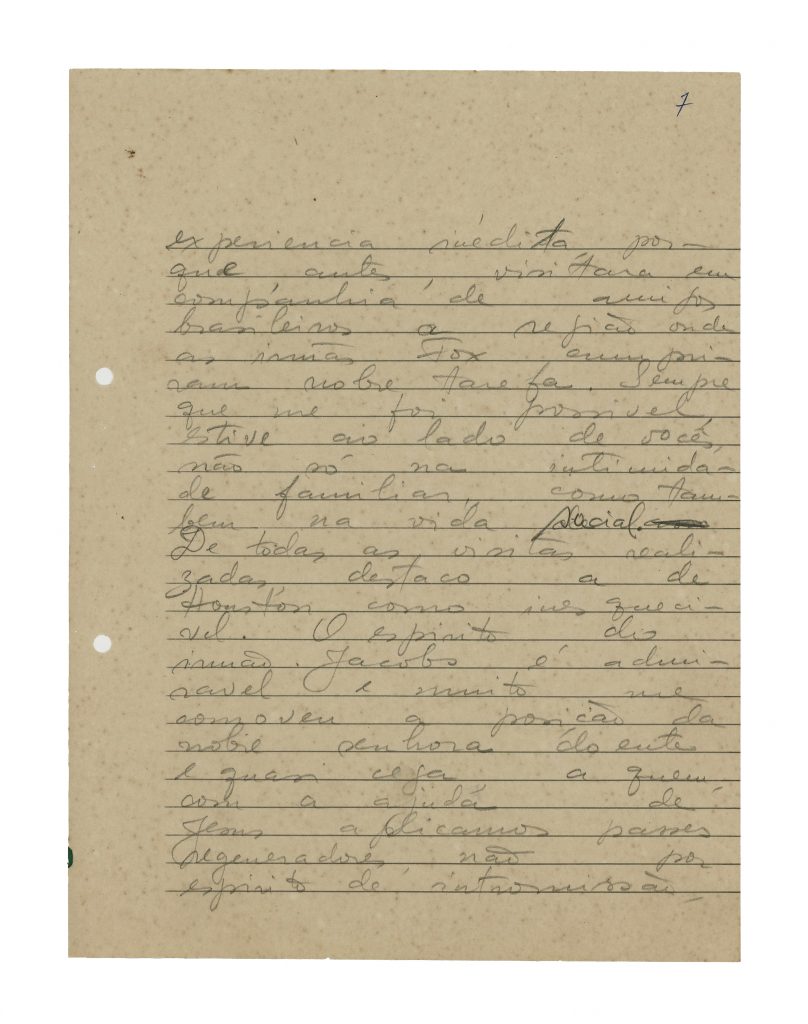 7
experiencia inédita, por-
que antes, visitara em
companhia de amigos
brasileiros a região onde
as irmãs Fox cumpri-
ram nobre tarefa. Sempre
que me foi possivel,
estive ao lado de vocês,
não só na intimida-
de familiar, como tam-
bem na vida social.
De todas as visitas reali-
zadas, destaco a de
Houston como inesqueci-
vel. O espirito do
irmão Jacobs é admi-
ravel e muito me
comoveu a posição da
nobre senhora doente
e quasi cega, a quem,
com a ajuda de
Jesus aplicamos passes
regeneradores, não por
espirito de intromissão,